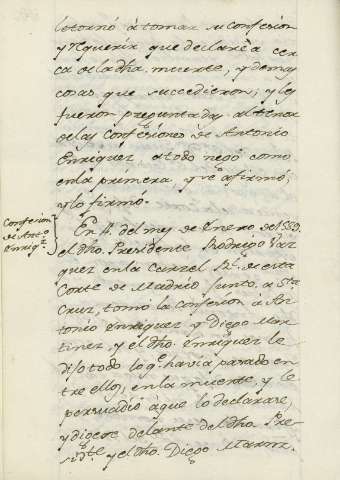 le tornó á tomar su confesion
y requerir que declare a cer
ca de la dha. muerte, y demas
cosas que succedieron; y les
fueron preguntadas al tenor
de las Confesiones de Antonio
Enriquez, a todo negó como
en la primera, y se afirmó;
y lo firmó.
Confesion
de Anto.
Enriqz.
En 4. del mes de Enero de 1590.
el dho. Presidente Rodrigo Vaz
quez en la Carzel Rl. de esta
Corte de Madrid junto a Sta.
Cruz, tomó la confesion á An-
tonio Enriquez y Diego Mar
tinez, y el dho. Enriquez le
dijo todo lo qe. havia pasado en
tre ellos, en la muerte, y le
persuadió a que lo declarase,
y digese delante del dho. Pre-
sidte. y el dho. Diego Martnz.